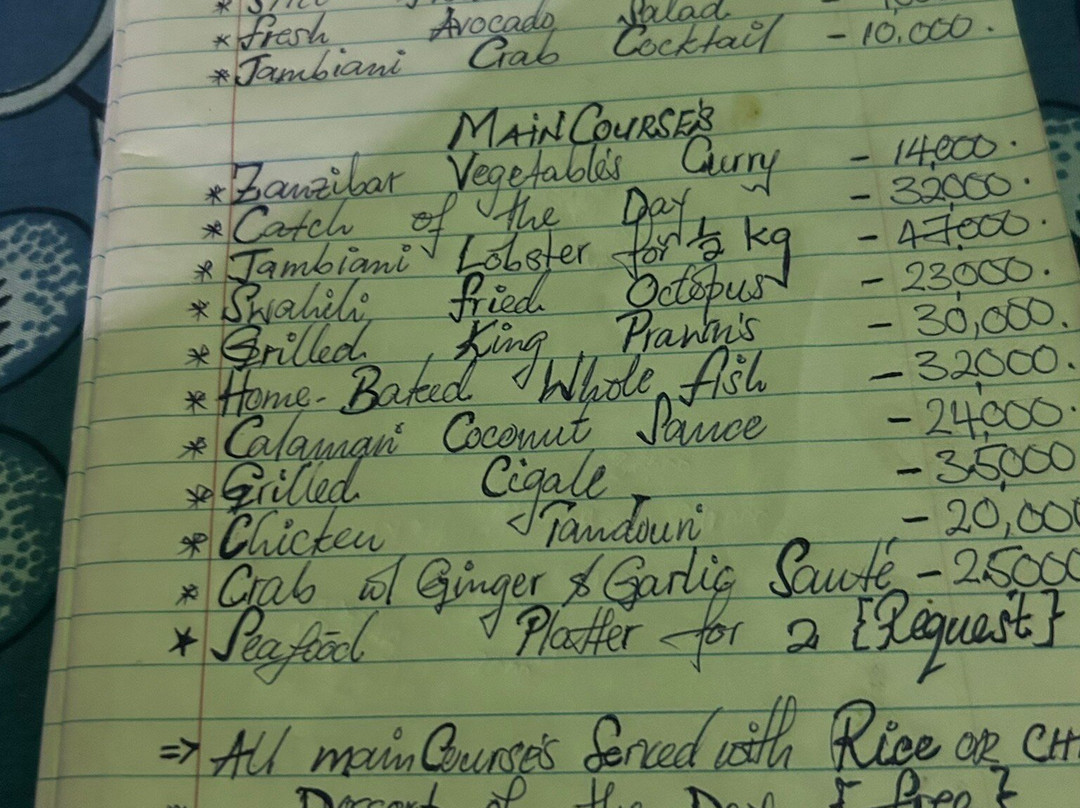 * fresh Avocado Salad
* Jambiani Crab Cocktail - 10,000.
MAIN COURSE'S
* Zanzibar Vegetable's Curry - 14,000.
* Catch of the Day - 32,000.
* Jambiani Lobster for 1/2 kg - 47,000.
* Swahili fried Octopus - 23,000.
* Grilled King Prawn's - 30,000.
* Home-Baked Whole fish - 32,000.
* Calamari Coconut Sauce - 24,000.
* Grilled Cigale - 35,000
* Chicken Tandouri - 20,000
* Crab w/ Ginger & Garlic Sauté - 25,000
* Seafood Platter for 2 {Request}
=> All main Course's Served with Rice OR CH
Dessert of the Day { free }